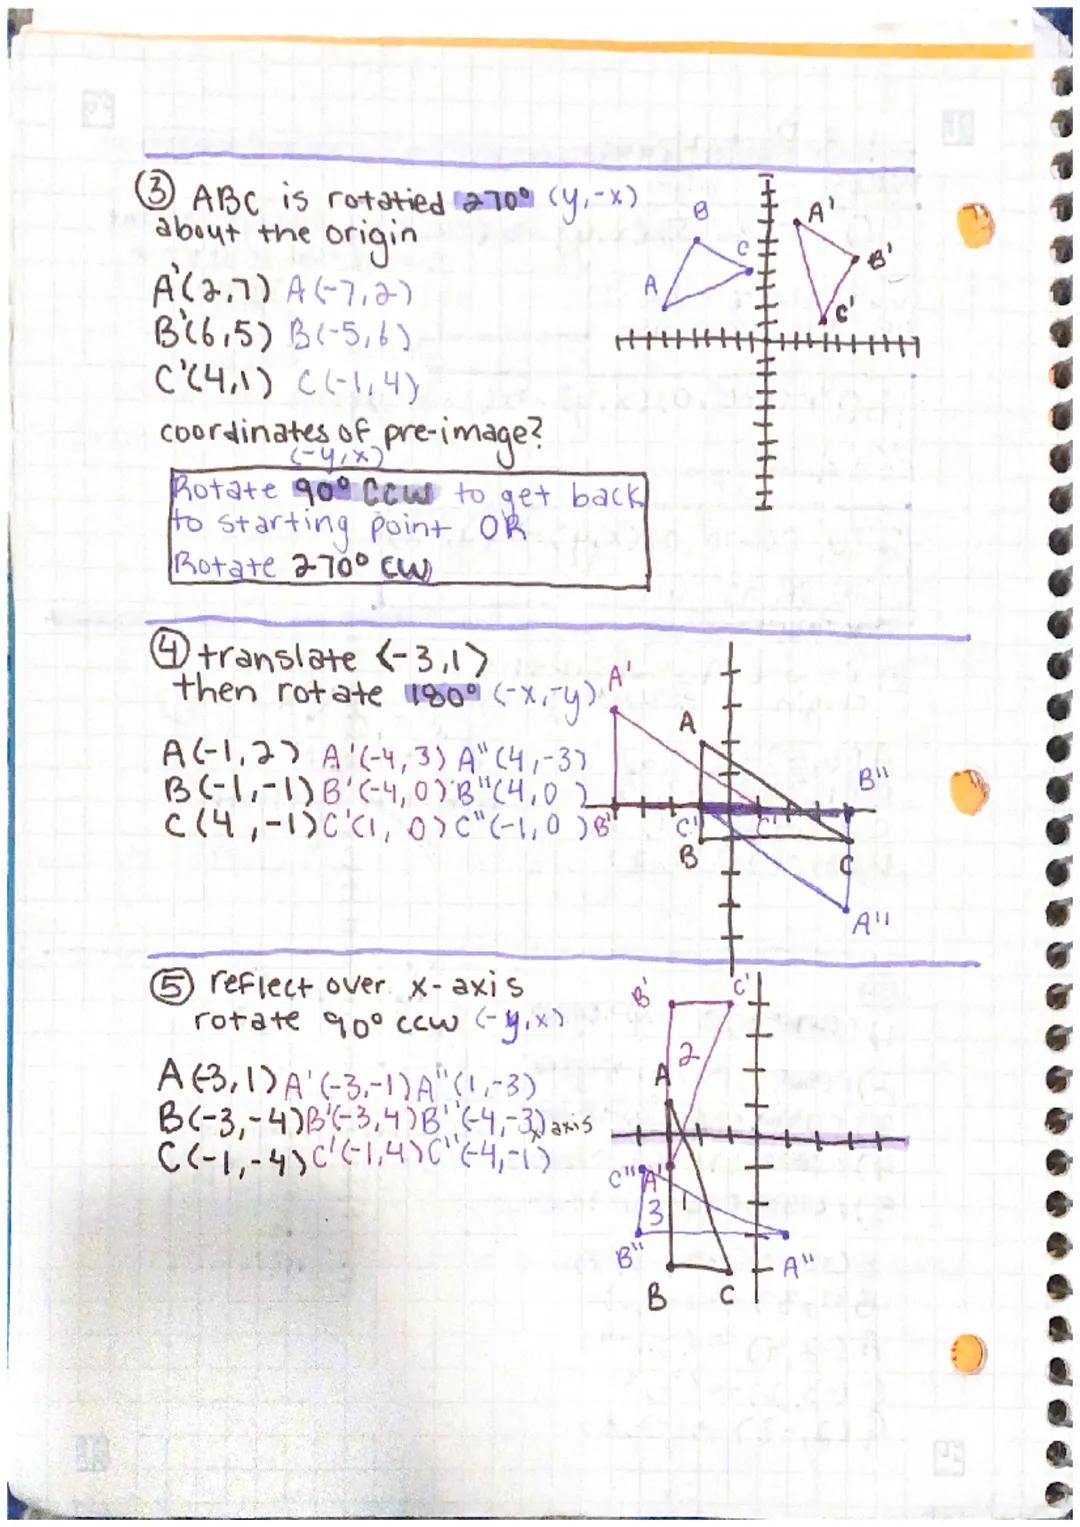 ③ ABC is rotatied 270° (y,-x)
about the origin
A'(2,7) A(-7,2)
B'(6,5) B(-5,6)
C'(4,1) C(-1,4)
coordinates of pre-image?
(-y,x)
Rotate 90° CCW to get back
to starting point OR
Rotate 270° CW
A
B
C
A'
B'
C'
④ translate <-3,1>
then rotate 180° (-x,-y)
A(-1,2) A'(-4,3) A"(4,-3)
B(-1,-1) B'(-4,0) B"(4,0)
C(4,-1) C'(1,0) C"(-1,0)
A'
A
B"
B'
C'
C'
B
C
A"
⑤ reflect over x-axis
rotate 90° ccw (-y,x)
A(-3,1) A'(-3,-1) A"(1,-3)
B(-3,-4) B'(-3,4) B"(-4,-3)
C(-1,-4) C'(-1,4) C"(-4,-1)
x axis
B'
C'
2
A
C"
A'
1
3
B"
A"
B
C